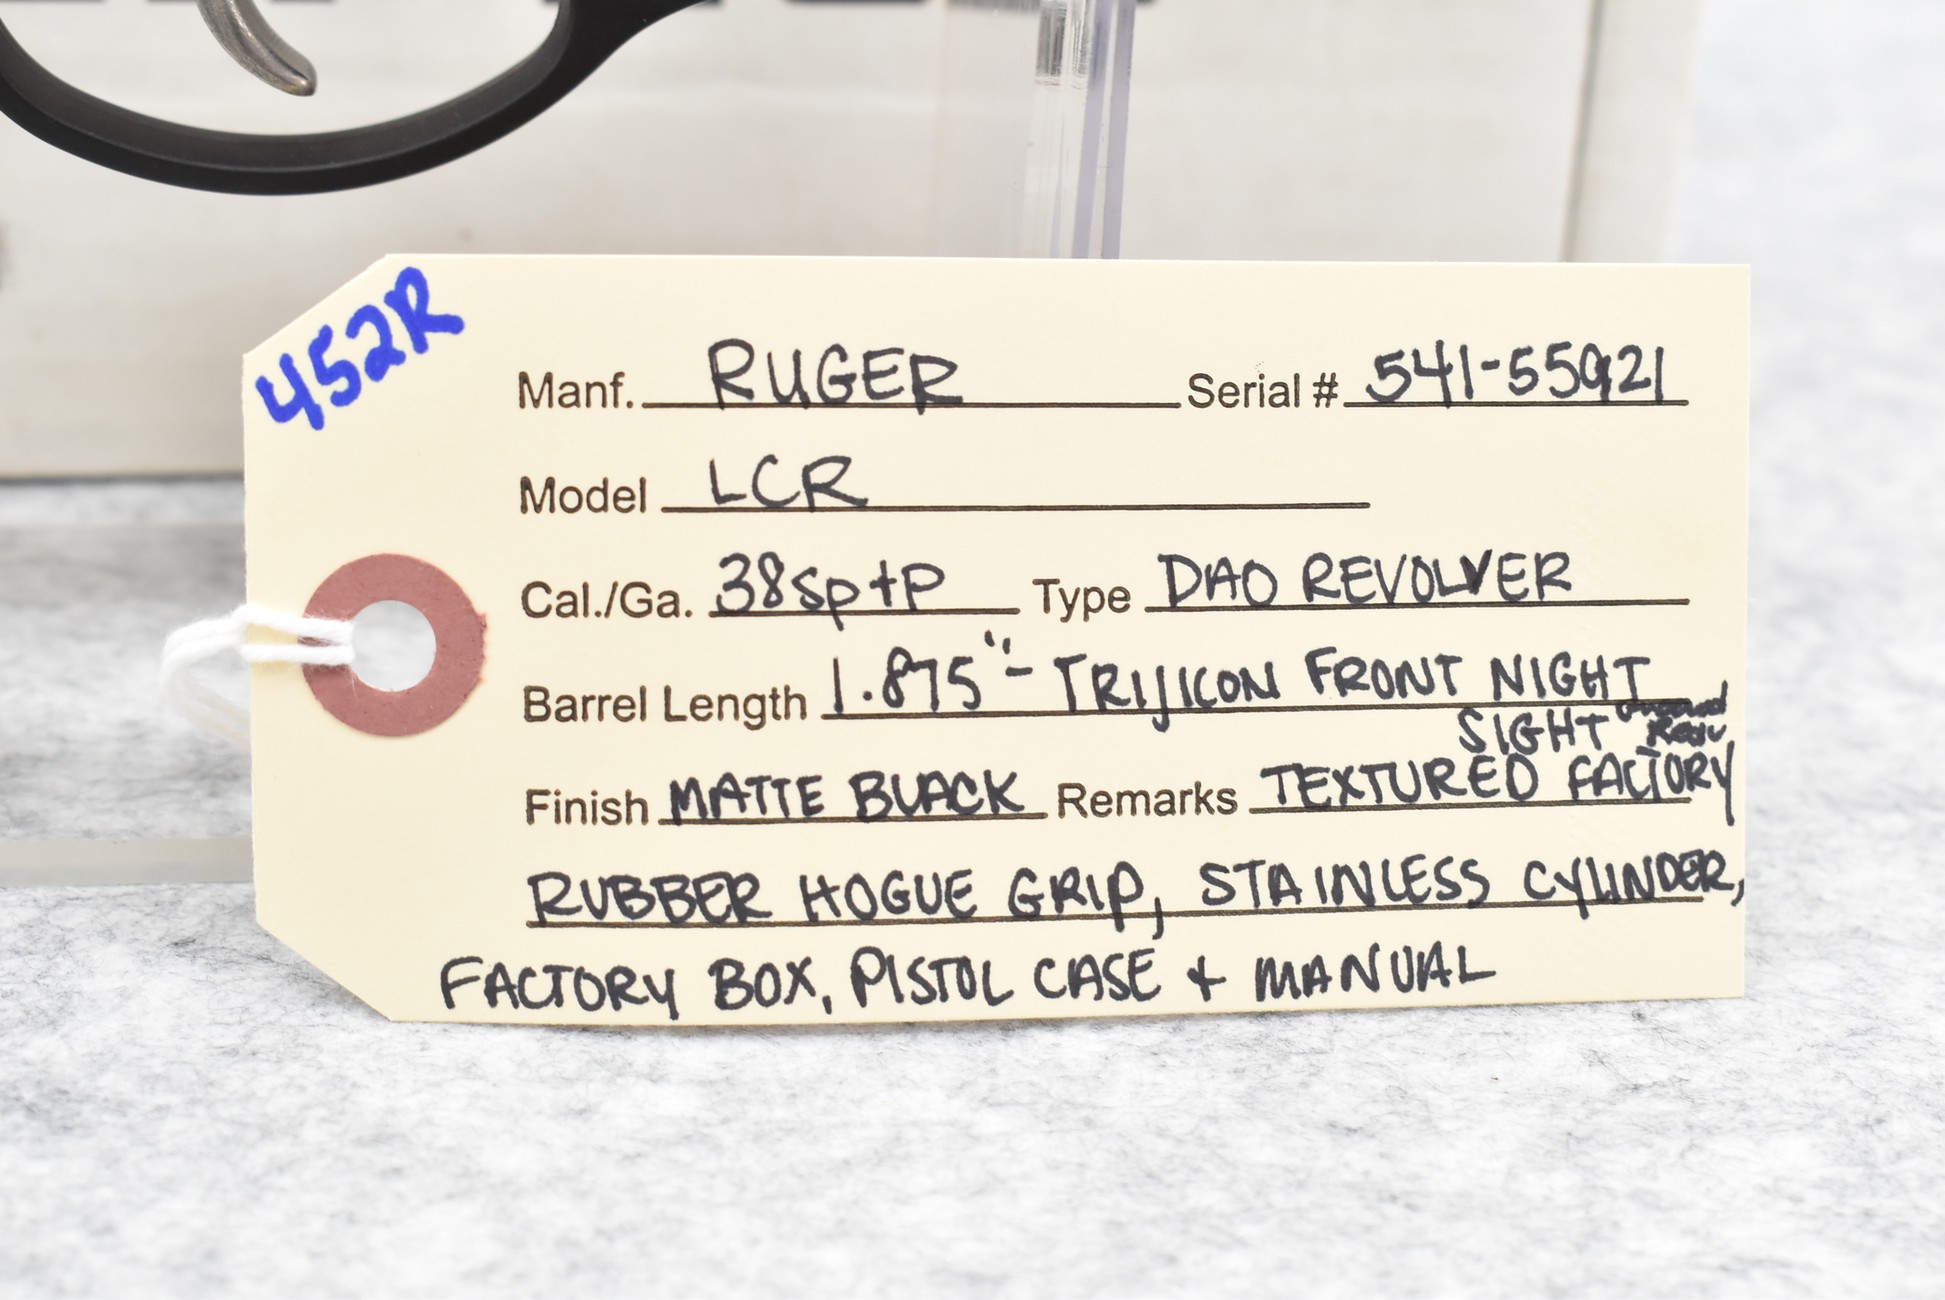 452R
Manf. RUGER Serial # 541-55921
Model LCR
Cal./Ga. 38sp+P Type DAO REVOLVER
Barrel Length 1.875"- TRIJICON FRONT NIGHT
SIGHT
Finish MATTE BLACK Remarks TEXTURED FACTORY
RUBBER HOGUE GRIP, STAINLESS CYLINDER,
FACTORY BOX, PISTOL CASE + MANUAL